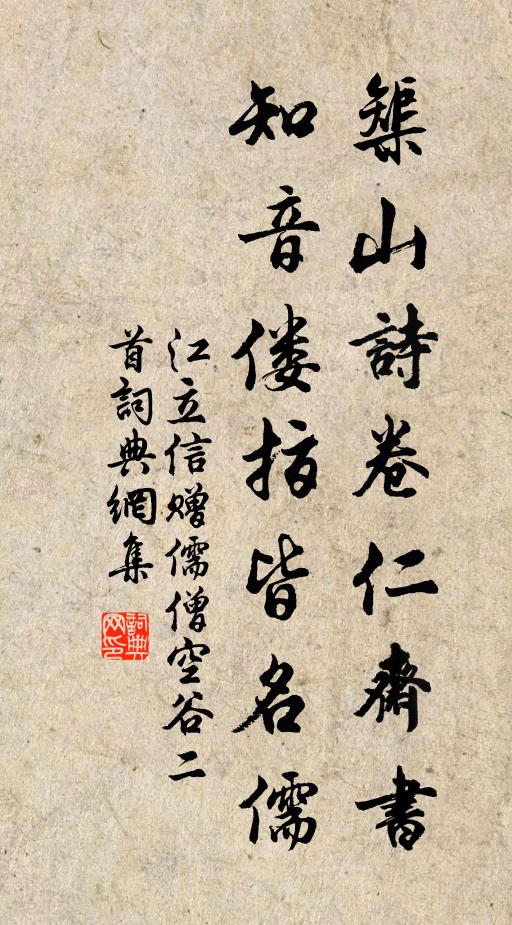 榘山詩卷仁齋書
知音僂指皆名儒
江立信贈儒僧空谷二
首詞典網集
詞典
网印